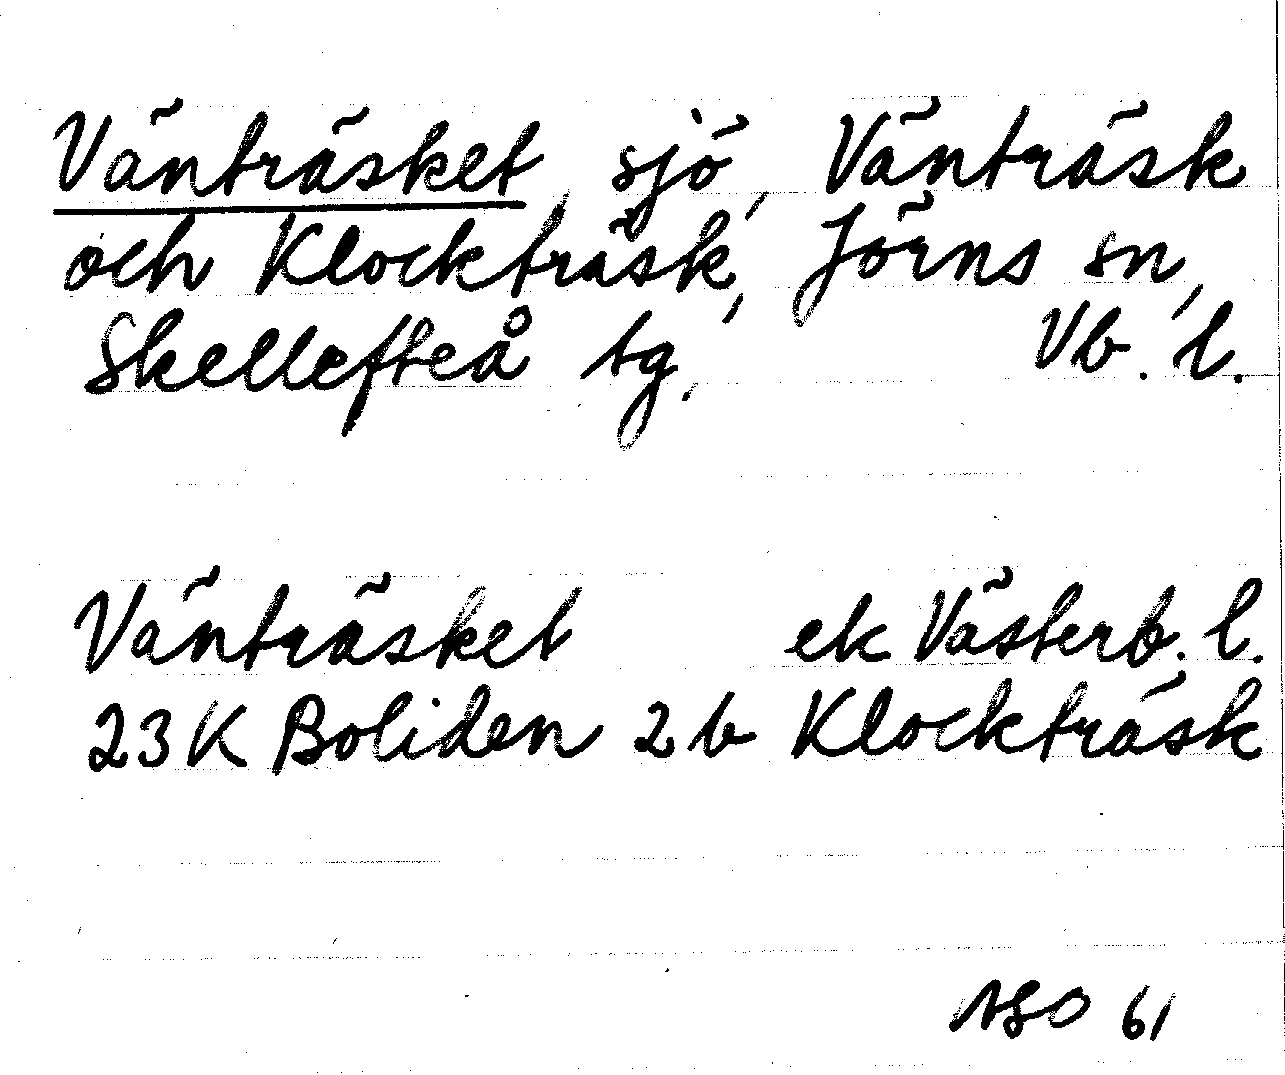 Vänträsket, sjö, Vänträsk
och Klockträsk, Jörns sn,
Skellefteå tg. Vb. l.
Vänträsket ek Västerb. l.
23K Boliden 2b Klockträsk
61